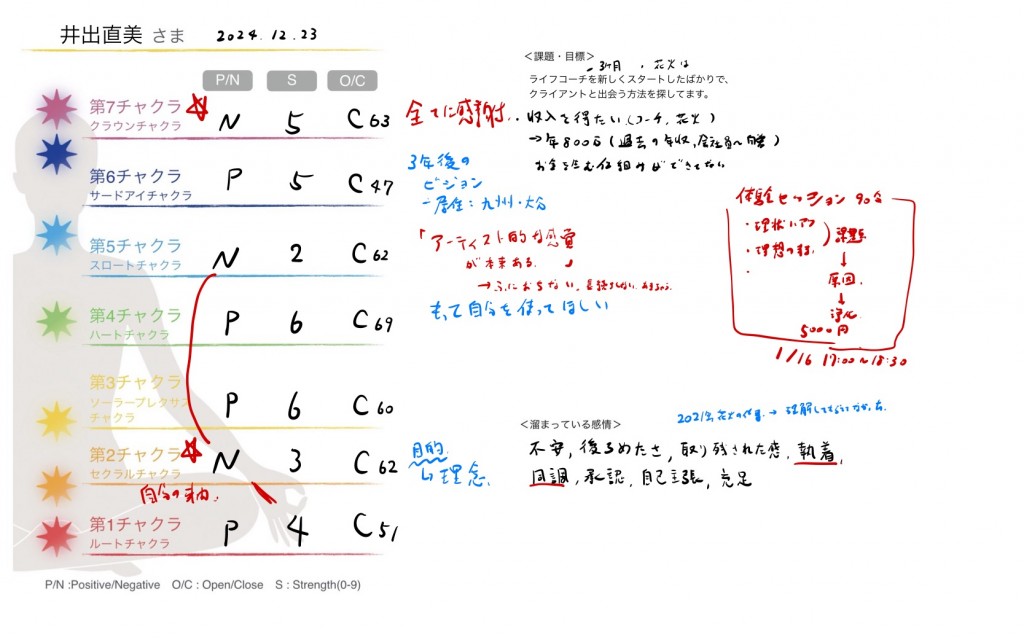 井出直美 さま 2024.12.23
P/N S O/C
第7チャクラ
クラウンチャクラ
N 5 C63
全てに感謝
第6チャクラ
サードアイチャクラ
P 5 C47
3年後の
ビジョン
居住:九州・大分
第5チャクラ
スロートチャクラ
N 2 C62
「アーティスト的な感覚
が本来ある 」
第4チャクラ
ハートチャクラ
P 6 C69
もって自分を使ってほしい
第3チャクラ
ソーラープレクサス
チャクラ
P 6 C60
第2チャクラ
セクラルチャクラ
N 3 C62
目的
↳理念
自分の
第1チャクラ
ルートチャクラ
P 4 C51
P/N :Positive/Negative O/C : Open/Close S : Strength(0-9)
<課題・目標>
3ヶ月 、花火は
ライフコーチを新しくスタートしたばかりで、
クライアントと出会う方法を探してます。
収入を得たい(コーチ, 花火)
→年800万(過去の年収,会社員
お金を 仕組みができてない
体験セッション 90分
・現状
・理想の
課題
↓
原因
↓
浄化
5000円
1/16 17:00〜18:30
2021年,花火の仕事 → 理解して
<溜まっている感情>
不安, 後ろめたさ, 取り残された感, 執着,
同調, 承認, 自己主張, 充足